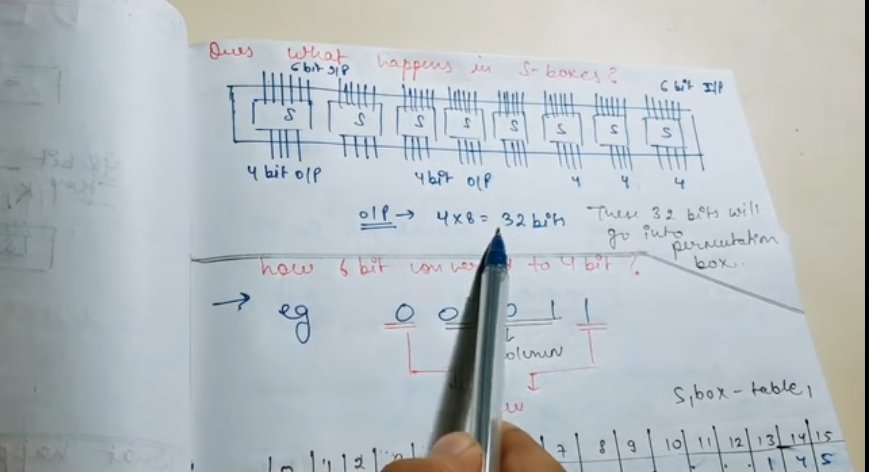 Ques what happens in S-boxes?
6 bit I/P 6 bit I/P
S S S S S S S S
4 bit O/P 4 bit O/P 4 4 4
O/P → 4x8 = 32 bits
These 32 bits will
go into
permutation
box..
how 6 bit to 4 bit ?
→ eg 0 0 0 1 1
S,box-table,
0 1 2 7 8 9 10 11 12 13 14 15
1 4 5